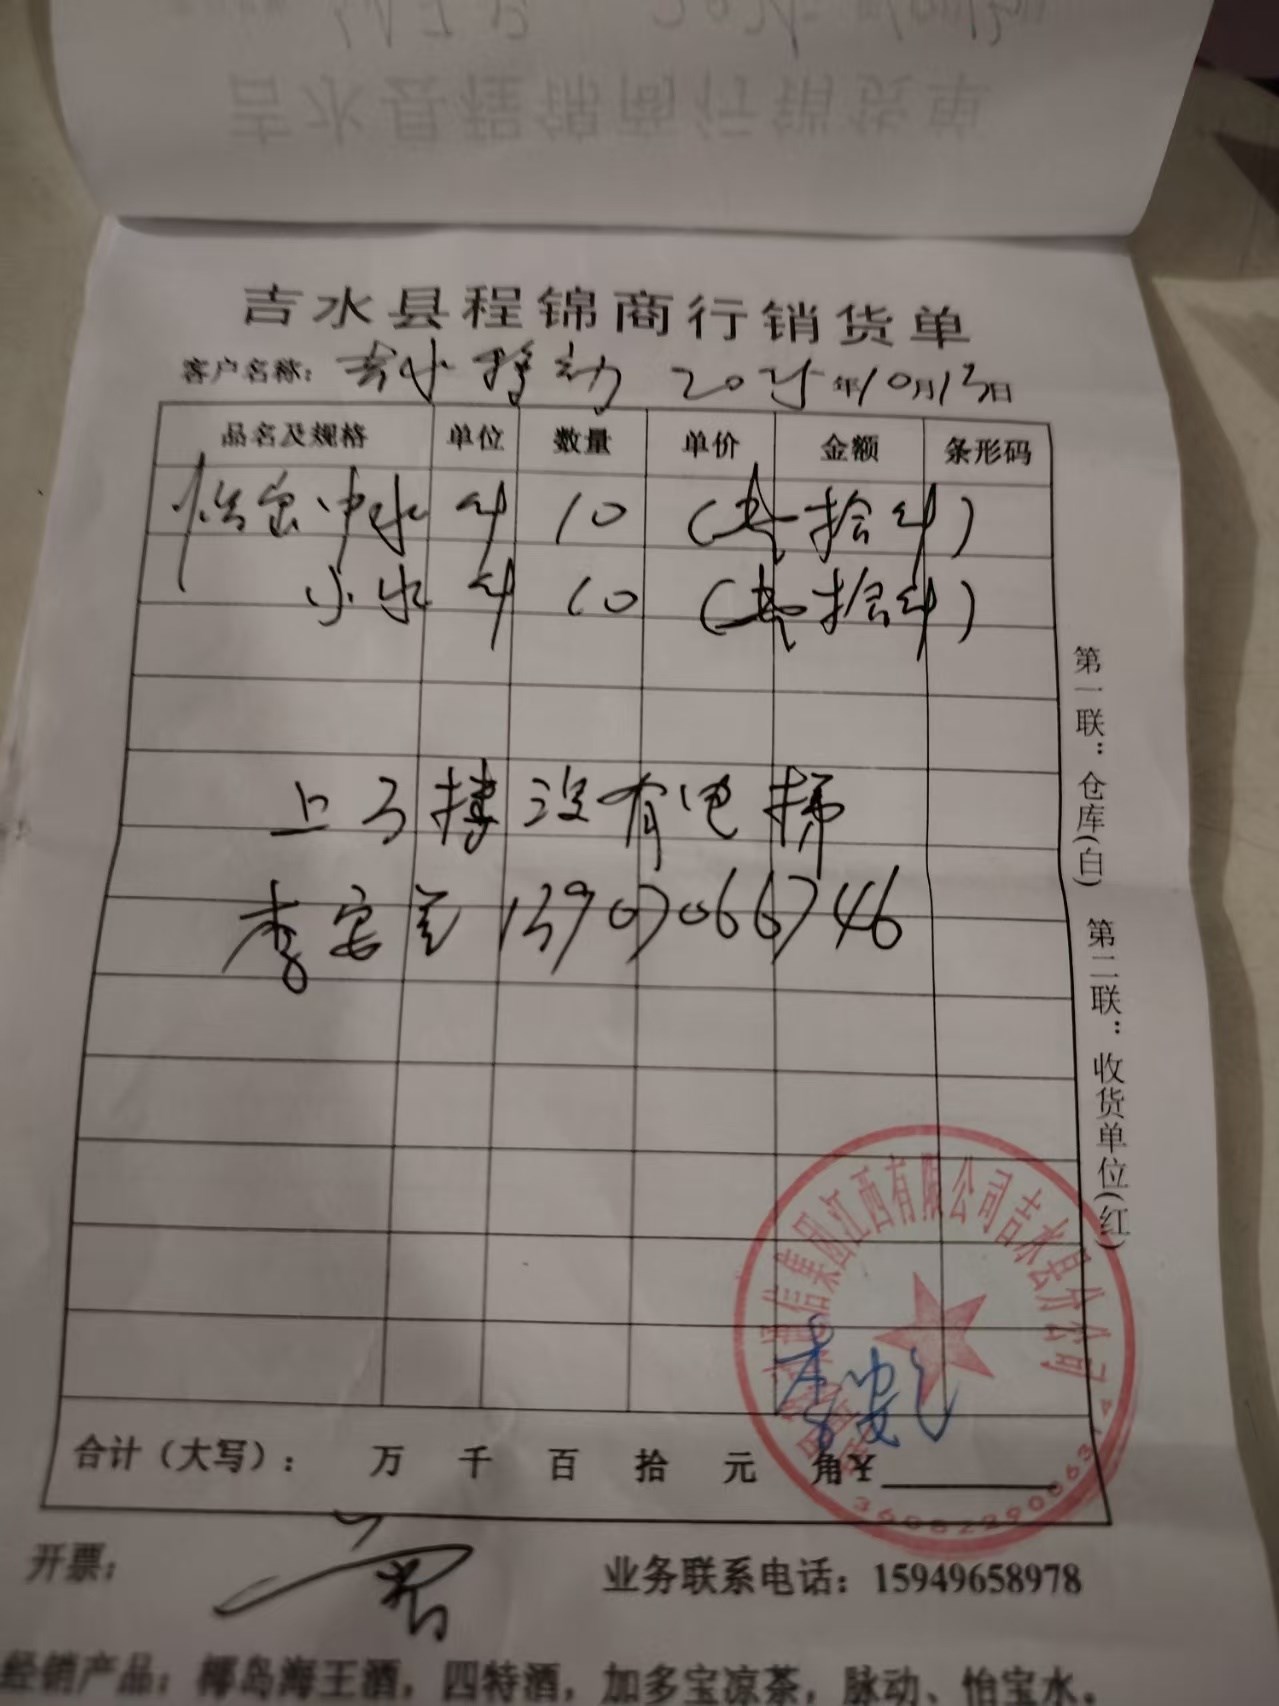 吉水县程锦商行销货单
客户名称: 吉水移动 2025年10月13日
品名及规格 单位 数量 单价 金额 条形码
怡宝中水 件 10 (壹拾件)
小水 件 10 (壹拾件)
上3楼没有电梯
李安 13907066746
第一联:仓库(白) 第二联:收货单位(红)
集团江西有限公司吉水县分公司
合计(大写): 万 千 百 拾 元 角¥
开票:
业务联系电话: 15949658978
经销产品: 椰岛海王酒, 四特酒, 加多宝凉茶, 脉动、怡宝水。